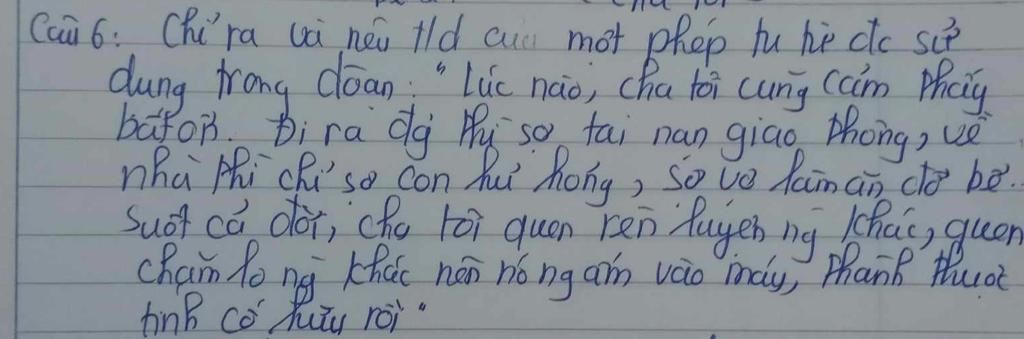 Câu 6: Chỉ ra và nêu t/d của một phép tu từ đc sử
dụng trong đoạn: "Lúc nào, cha tôi cũng cảm thấy
bất ổn. Đi ra đg thì sợ tai nạn giao thông, về
nhà thì chỉ sợ con hư hỏng, sợ vợ làm ăn đổ bể..
Suốt cả đời, cha tôi quen rèn luyện ng khác, quen
chăm lo ng khác nên nó ngấm vào máu, thành thuộc
tính cố hữu rồi"